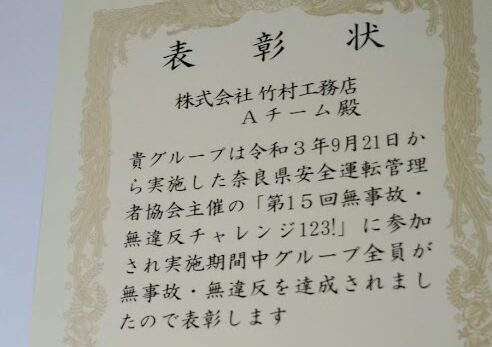 表彰状
株式会社 竹村工務店
Aチーム殿
貴グループは令和3年9月21日か
ら実施した奈良県安全運転管理
者協会主催の「第15回無事故・
無違反チャレンジ123!」に参加
され実施期間中グループ全員が
無事故・無違反を達成されまし
たので表彰します